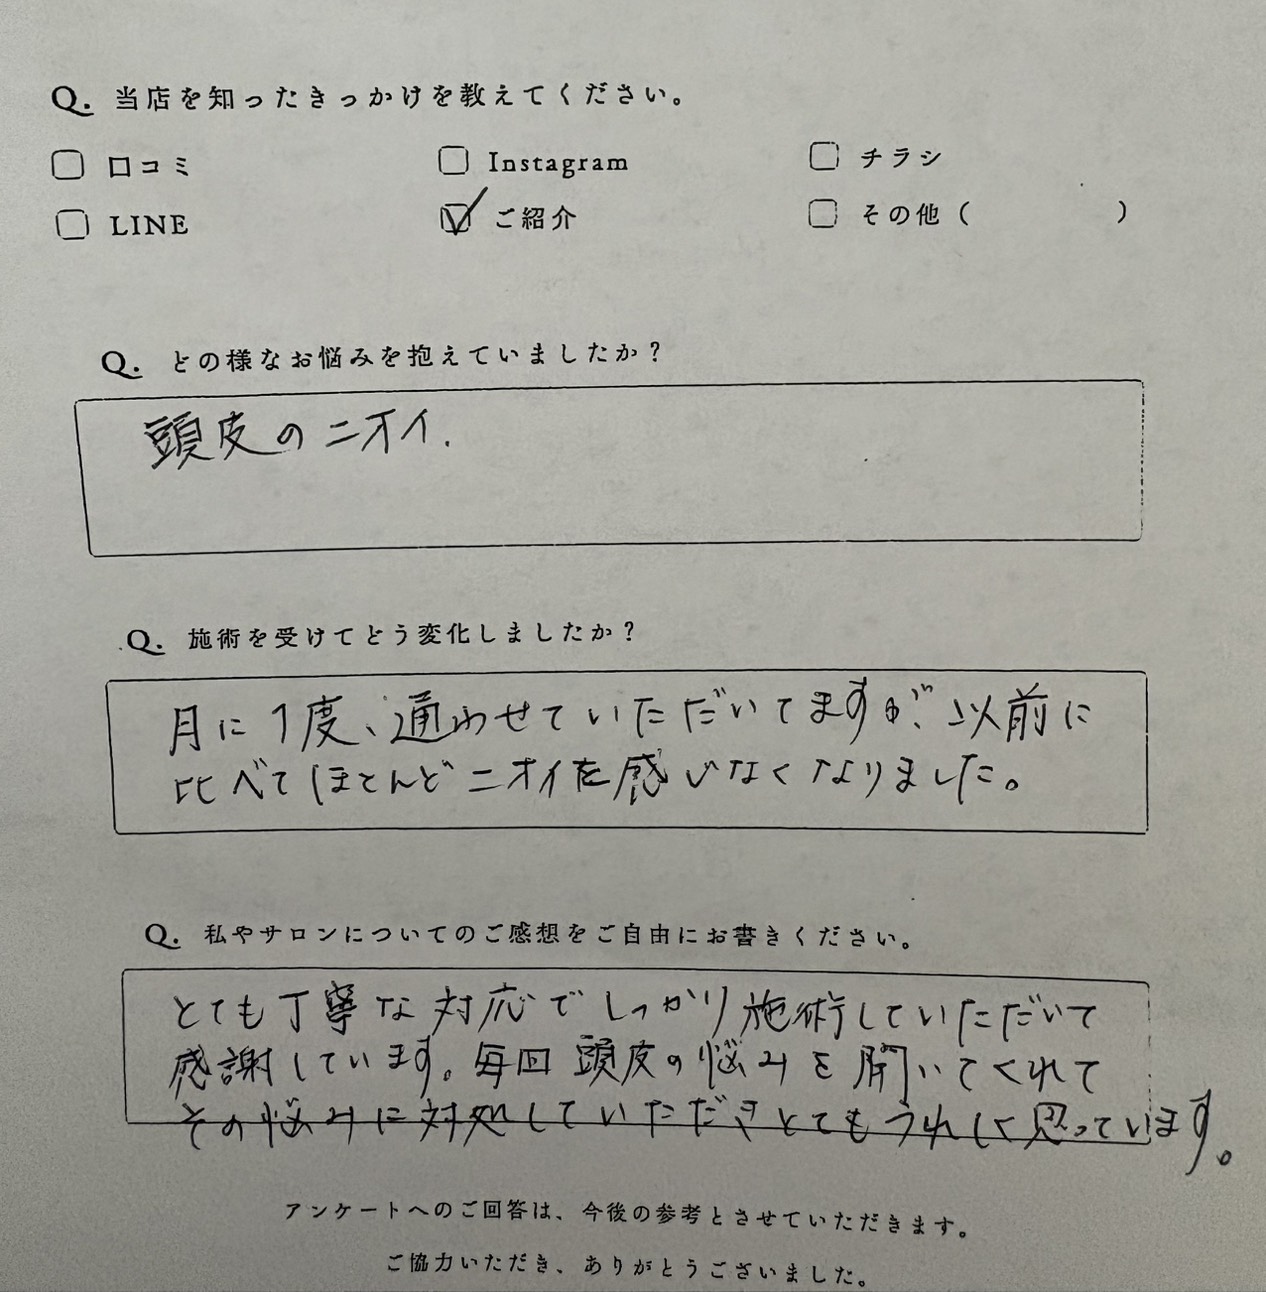 Q. 当店を知ったきっかけを教えてください。
□ 口コミ □ Instagram □ チラシ
□ LINE ☑ ご紹介 □ その他（　　　　　）
Q. どの様なお悩みを抱えていましたか？
頭皮のニオイ.
Q. 施術を受けてどう変化しましたか？
月に1度、通わせていただいてますが、以前に
比べてほとんどニオイを感じなくなりました。
Q. 私やサロンについてのご感想をご自由にお書きください。
とても丁寧な対応でしっかり施術していただいて
感謝しています。毎回頭皮の悩みを聞いてくれて
その悩みに対処していただきとてもうれしく思っています。
アンケートへのご回答は、今後の参考とさせていただきます。
ご協力いただき、ありがとうございました。